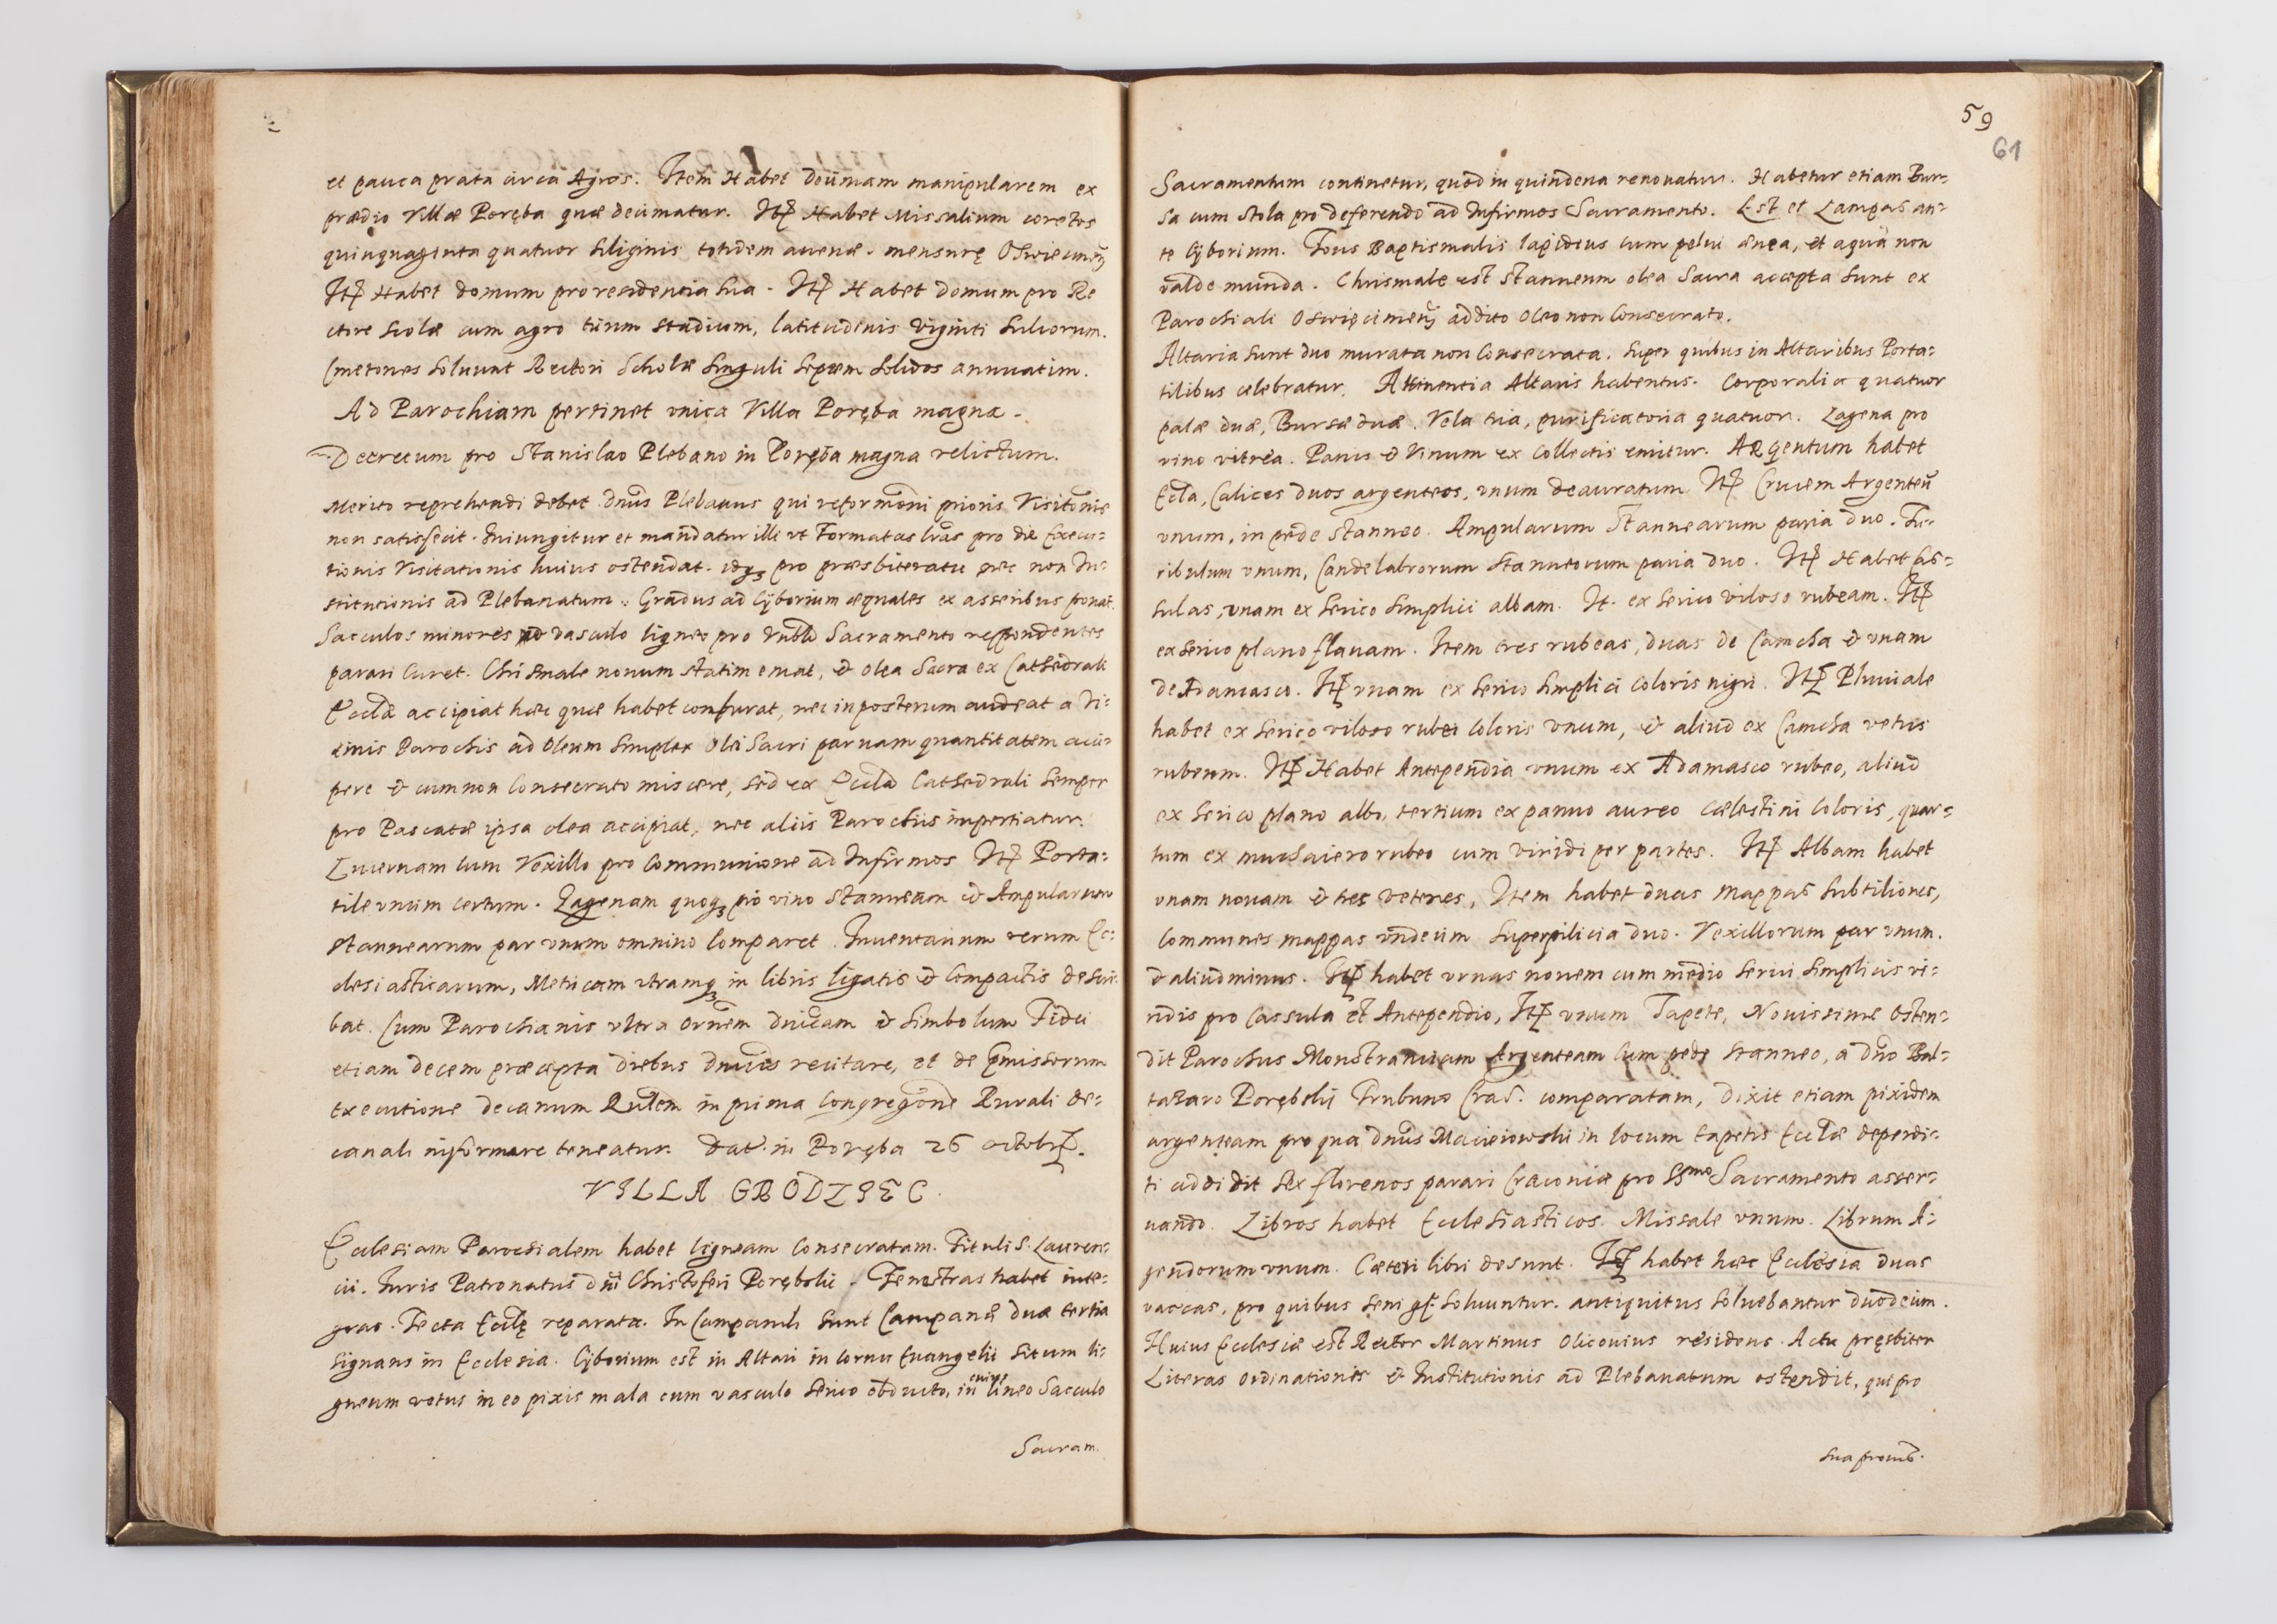 et pauca prata circa Agros. Item Habet decimam manipularem ex
prædio Villæ Poręba quæ decimatur. Itē Habet Missalium coretos
quinquaginta quatuor siliginis totidem auenæ. mensurę Oswiecimeñ
Itē Habet domum pro residencia sua. Itē Habet domum pro Re
ctore scolæ cum agro trium stadiorum, latitudinis viginti sulcorum.
Cmetones soluunt Rectori Scholæ singuli septem solidos annuatim.
Ad Parochiam pertinet vnica Villa Poręba magna.
Decretum pro Stanislao Plebano in Poręba magna relictum.
Merito reprehendi debet Dnūs Plebanus qui reformaōni prioris Visitōnis
non satisfecit. Iniungitur et mandatur illi vt Formatas lrās pro die Execu-
tionis Visitationis huius ostendat. idq3 pro præsbiteratu nec non In-
stitutionis ad Plebanatum. Gradus ad Cyborium æquales ex asseribus ponat.
Sacculos minores vasculo ligneo pro Vnblo Sacramento respondentes
parari curet. Chrismale nouum statim emat, & olea Sacra ex Cathedrali
Ecclā accipiat hæc quæ habet comburat, nec in posterum audeat a Vi-
cinis Parochis ad oleum simplex olei sacri paruam quantitatem acci-
pere & cum non consecrato miscere, sed ex Ecclā Cathedrali semper
pro Pascatæ ipsa olea accipiat, nec aliis Parochiis impertiatur.
Lucernam cum Vexillo pro communione ad Infirmos Itē Porta-
tile vnum certum. Lagenam quoq3 pro vino Stanneam & Ampularum
stannearum par vnum omnino comparet. Inuentarium rerum Ec-
clesiasticarum, Metricam vtramq3 in libris ligatis & compactis descri-
bat. Cum Parochianis vltra orōnem dnīcam & simbolum Fidei
etiam decem præcepta diebus dnīcis recitare, et de præmissorum
executione decanum Rulem in prima congregōne Rurali de-
canali informare teneatur. Dat. in Poręba 26 octobr.
VILLA GRODZIEC.
Ecclesiam Parochialem habet ligneam consecratam. Tituli S. Lauren-
cii. Iuris Patronatus dnī Christoferi Porębski. Fenestras habet inte-
gras. Tecta Ecclę reparata. In Campanili sunt Campanæ duæ tertia
signans in Ecclesia. Cyborium est in Altari in cornu Euangelii situm li-
gneum vetus in eo pixis mala cum vasculo serico obducto, in cuius lineo Sacculo
Sacram.
59
61
Sacramentum continetur, quod in quindena renouatur. Habetur etiam Bur-
sa cum stola pro deferendo ad Infirmos Sacramento. Est et Lampas an-
te Cyborium. Fons Baptismalis lapideus cum pelui ænea, et aqua non
valde munda. Chrismale est stanneum olea Sacra accepta sunt ex
Parochiali Oswięcimeñ addito oleo non consecrato.
Altaria sunt duo murata non consecrata. super quibus in Altaribus Porta-
tilibus celebratur. Attinentia Altaris habentur. Corporalia quatuor
palæ duæ, Bursæ duæ. Vela tria, purificatoria quatuor. Lagena pro
vino vitrea. Panis & Vinum ex collectis emitur. Argentum habet
Eccla, Calices duos argenteos, vnum deauratum. Itē Crucem Argenteū
vnum, in pede stanneo. Ampularum Stannearum paria duo. Tu-
ribulum vnum, Candelabrorum stanneorum paria duo. Itē Habet Cas-
sulas, vnam ex serico simplici albam. It. ex serico viloso rubeam. Itē
ex serico plano flauam. Item tres rubeas, duas de Camcha & vnam
de Adamasco. Itē vnam ex serico simplici coloris nigri. Itē Pluuiale
habet ex serico viloso rubei coloris vnum, & aliud ex Camcha vetus
rubeum. Itē Habet Antependia vnum ex Adamasco rubeo, aliud
ex serico plano albo, tertium ex panno aureo cælestini coloris, quar-
tum ex muchaiero rubeo cum viridi per partes. Itē Albam habet
vnam nouam & tres veteres, Item habet duas mappas subtiliores,
communes mappas vndecim superpilicia duo. Vexillorum par vnum.
& aliud minus. Itē habet vrnas nouem cum medio serici simplicis vi-
ridis pro Cassula et Antependio, Itē vnum Tapete, Nouissime osten-
dit Parochus Monstranciam Argenteam cum pede stanneo, a dno Bal-
tazaro Porębski Tribuno Crac. comparatam, dixit etiam pixidem
argenteam pro qua dnūs Macieiowski in locum tapetis Ecclæ deperdi-
ti addidit sex florenos parari Cracouiæ pro SSmo Sacramento asser-
uando. Libros habet Ecclesiasticos. Missale vnum. Librum A-
gendorum vnum. Cæteri libri desunt. Itē habet hæc Ecclesia duas
vaccas, pro quibus seni gs. soluuntur. antiquitus soluebantur duodecim.
Huius Ecclesiæ est Rector Martinus Olicouius residens. Actu pręsbiter
Literas ordinationis & Institutionis ad Plebanatum ostendit, qui pro
sua prouis.